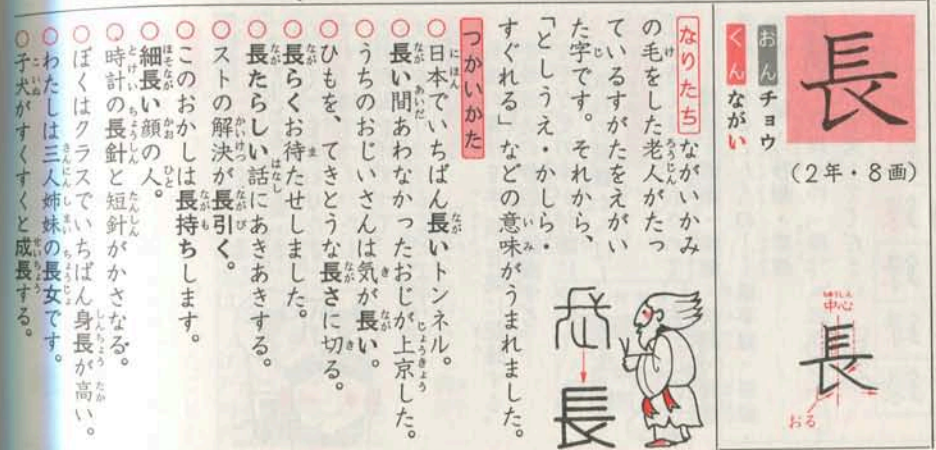 長
おん チョウ
くん ながい
(2年・8画)
中心
長
おる
なりたち ながいかみ
の毛をした老人がたっ
ているすがたをえがい
た字です。それから、
「としうえ・かしら・
すぐれる」などの意味がうまれました。
長
つかいかた
○日本でいちばん長いトンネル。
○長い間あわなかったおじが上京した。
○うちのおじいさんは気が長い。
○ひもを、てきとうな長さに切る。
○長らくお待たせしました。
○長たらしい話にあきあきする。
○ストの解決が長引く。
○このおかしは長持ちします。
○細長い顔の人。
○時計の長針と短針がかさなる。
○ぼくはクラスでいちばん身長が高い。
○わたしは三人姉妹の長女です。
○子犬がすくすくと成長する。